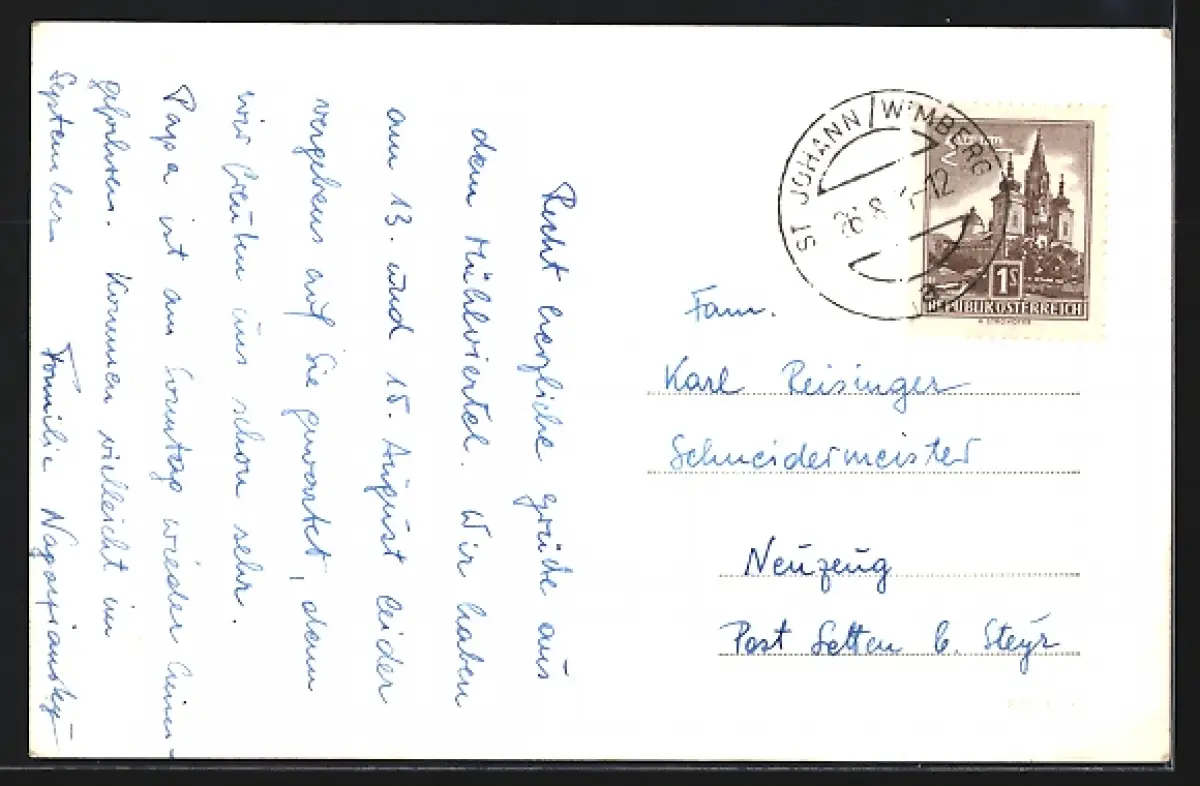 Recht herzliche Grüße aus
dem Mühlviertel. Wir haben
am 13. und 15. August leider
vergebens auf Sie gewartet, denn
wir freuten uns schon sehr.
Papa ist am Sonntag wieder heim-
gefahren. Kommen vielleicht im
September. Familie
ST JOHANN/WIMBERG
26.8. -12
a
1S
REPUBLIK ÖSTERREICH
Fam.
Karl Reisinger
Schneidermeister
Neuzeug
Post Setten b. Steyr